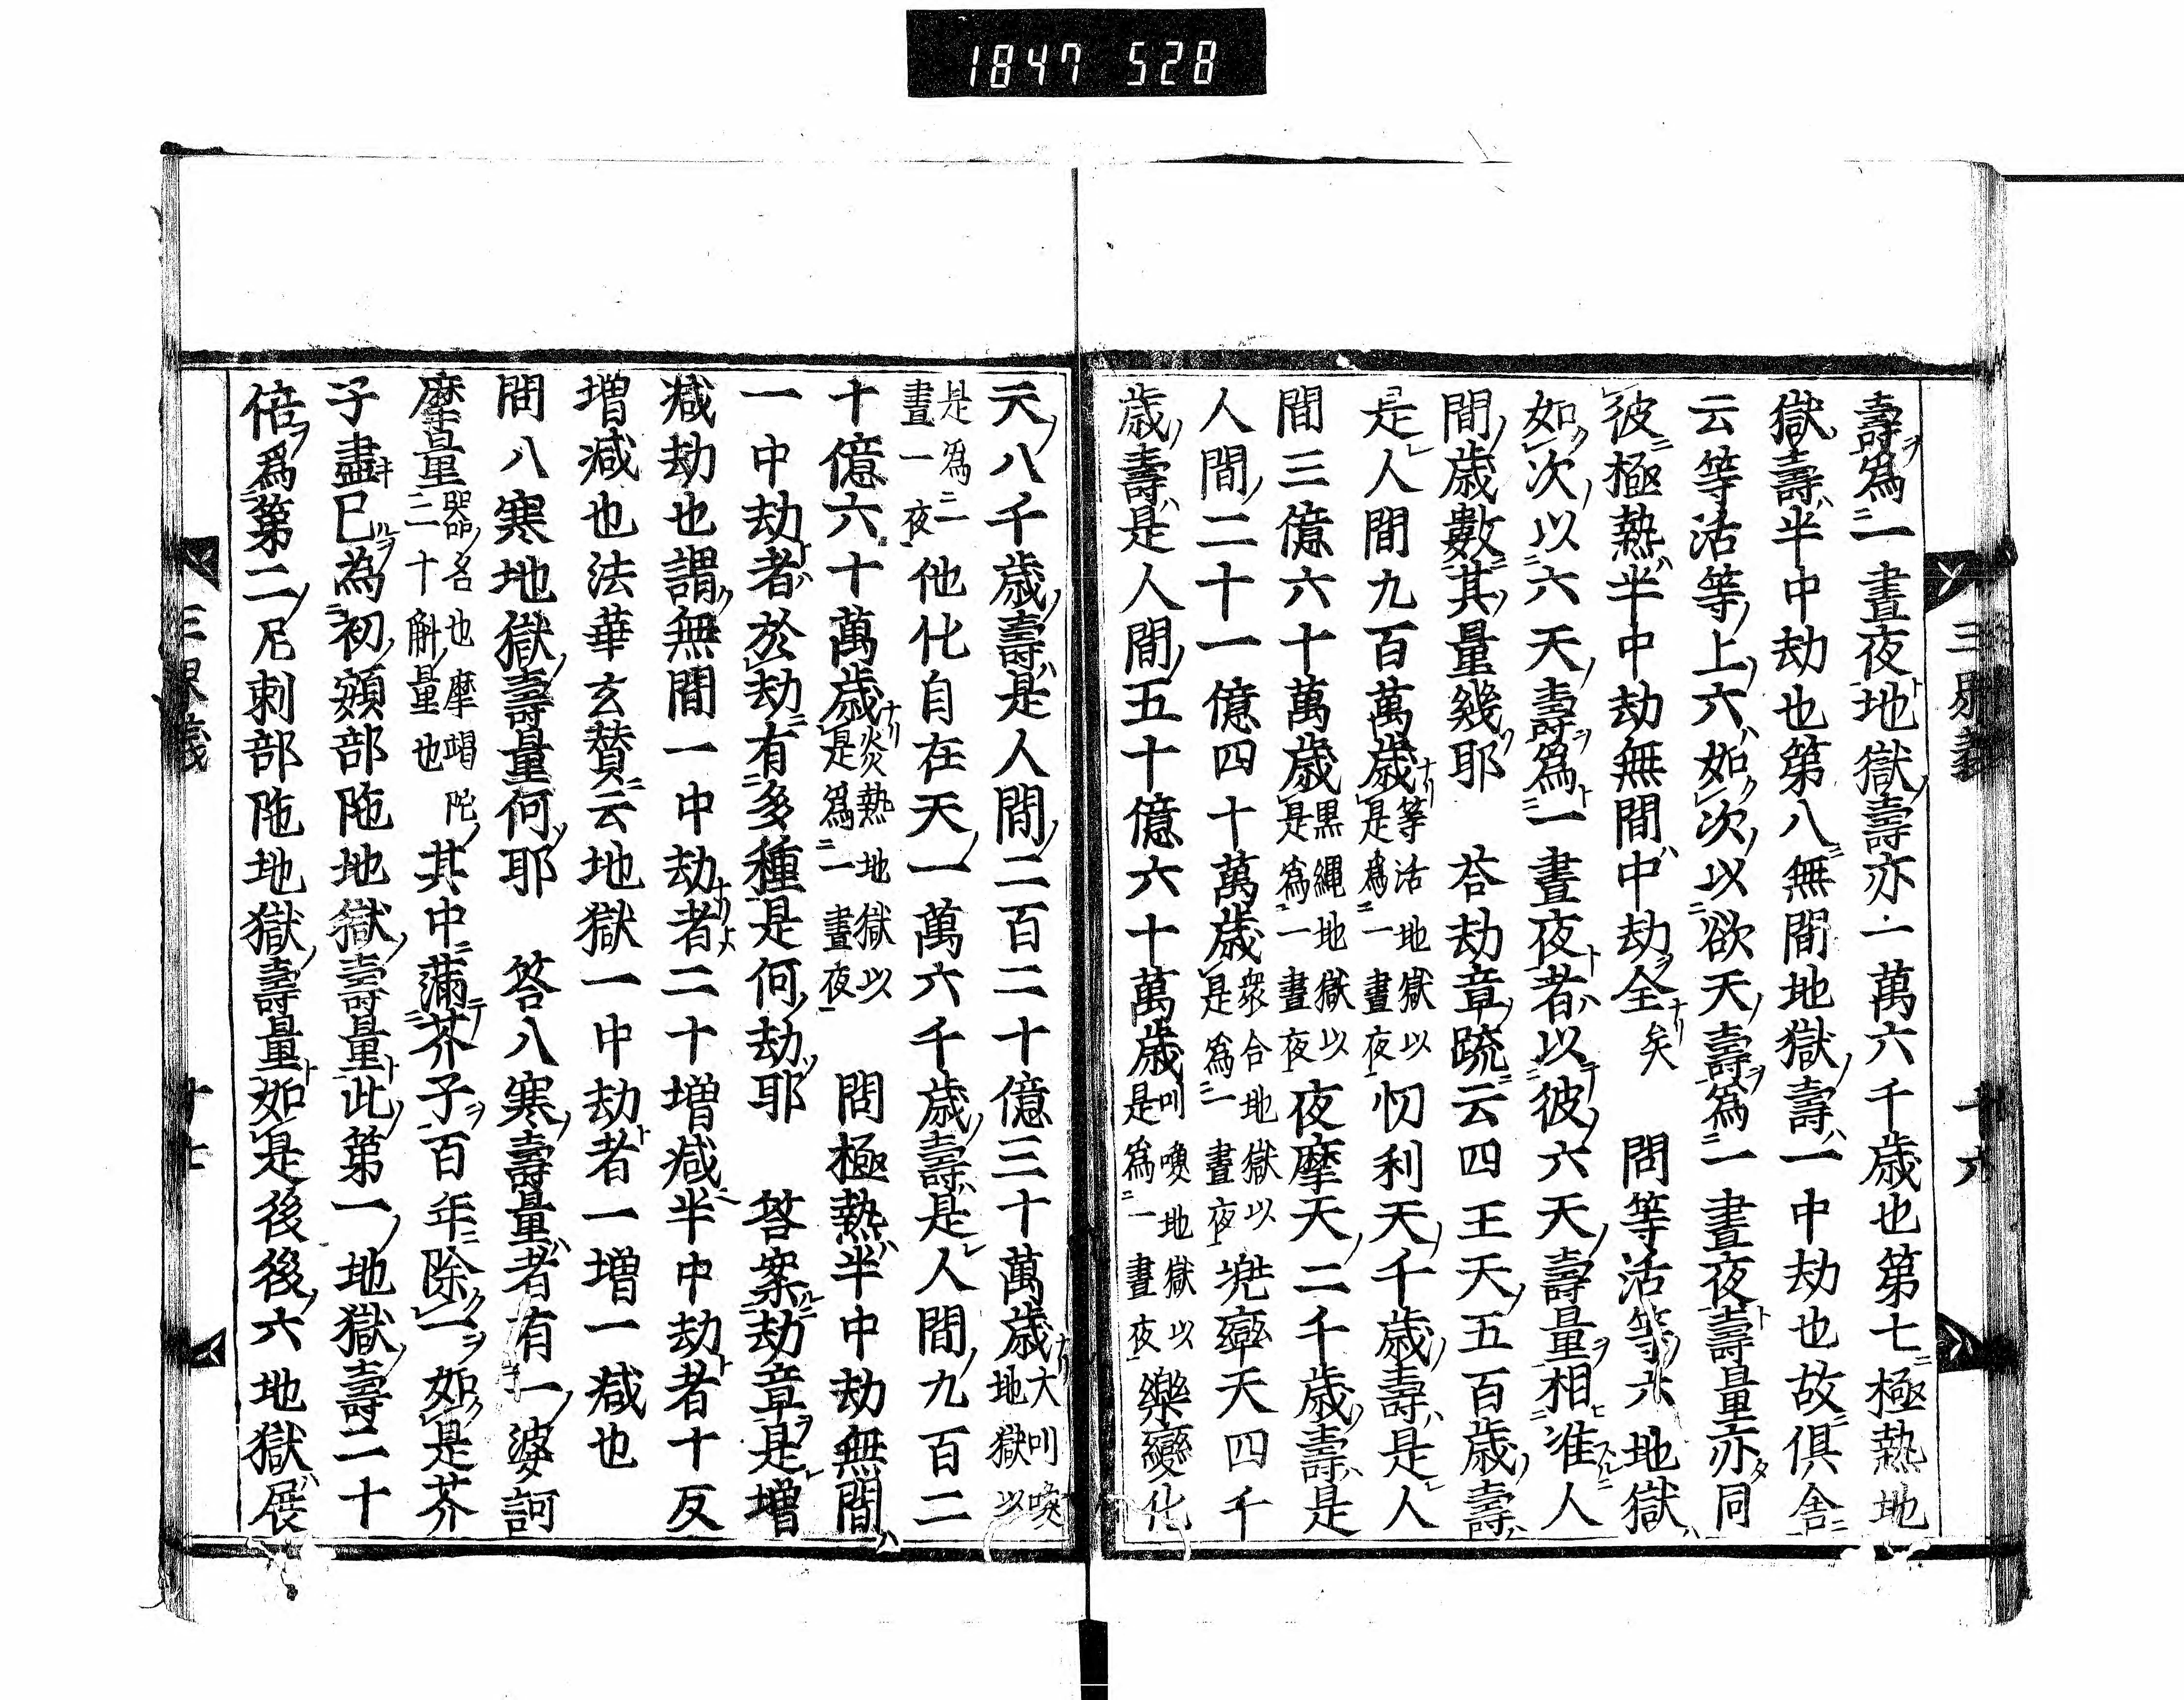 1847 528
三界義
十六
壽爲一晝夜地獄壽亦一萬六千歲也第七極熱地
獄壽半中劫也第八無間地獄壽一中劫也故俱舍
云等活等上六如次以欲天壽爲一晝夜壽量亦同
彼極熱半中劫無間中劫全矣 問等活等六地獄
如次以六天壽爲一晝夜者以彼六天壽量相准人
間歲數其量幾耶 荅劫章䟽云四王天五百歲壽
是人間九百萬歲等活地獄以是爲一晝夜忉利天千歲壽是人
間三億六十萬歲黒繩地獄以是爲一晝夜夜摩天二千歲壽是
人間二十一億四十萬歲衆合地獄以是爲一晝夜兠率天四千
歲壽是人間五十億六十萬歲叫喚地獄以是爲一晝夜樂變化
天八千歲壽是人間二百二十億三十萬歲大叫喚地獄以
是爲一晝夜他化自在天一萬六千歲壽是人間九百二
十億六十萬歲炎熱地獄以是爲一晝夜 問極熱半中劫無間
一中劫者於劫有多種是何劫耶 答案劫章是增
减劫也謂無間一中劫者二十增减半中劫者十反
增减也法華玄贊云地獄一中劫者一增一减也
問八寒地獄壽量何耶 答八寒壽量者有一婆訶
摩量婆訶名也摩竭陀二十斛量也其中蒲芥子百年除一如是芥
子盡巳為初頞部陁地獄壽量此第一地獄壽二十
倍爲第二尼刺部陁地獄壽量如是後後六地獄展
三界義
十七